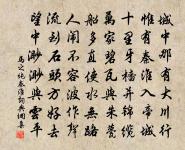 城中那有大川行
惟有秦淮入帝城
十里牙檣并錦纜
萬家碧瓦與朱甍
船多直使水無路
人鬧不容波作聲
流到石頭方好去
望中渺渺與雲平
馬之純秦淮